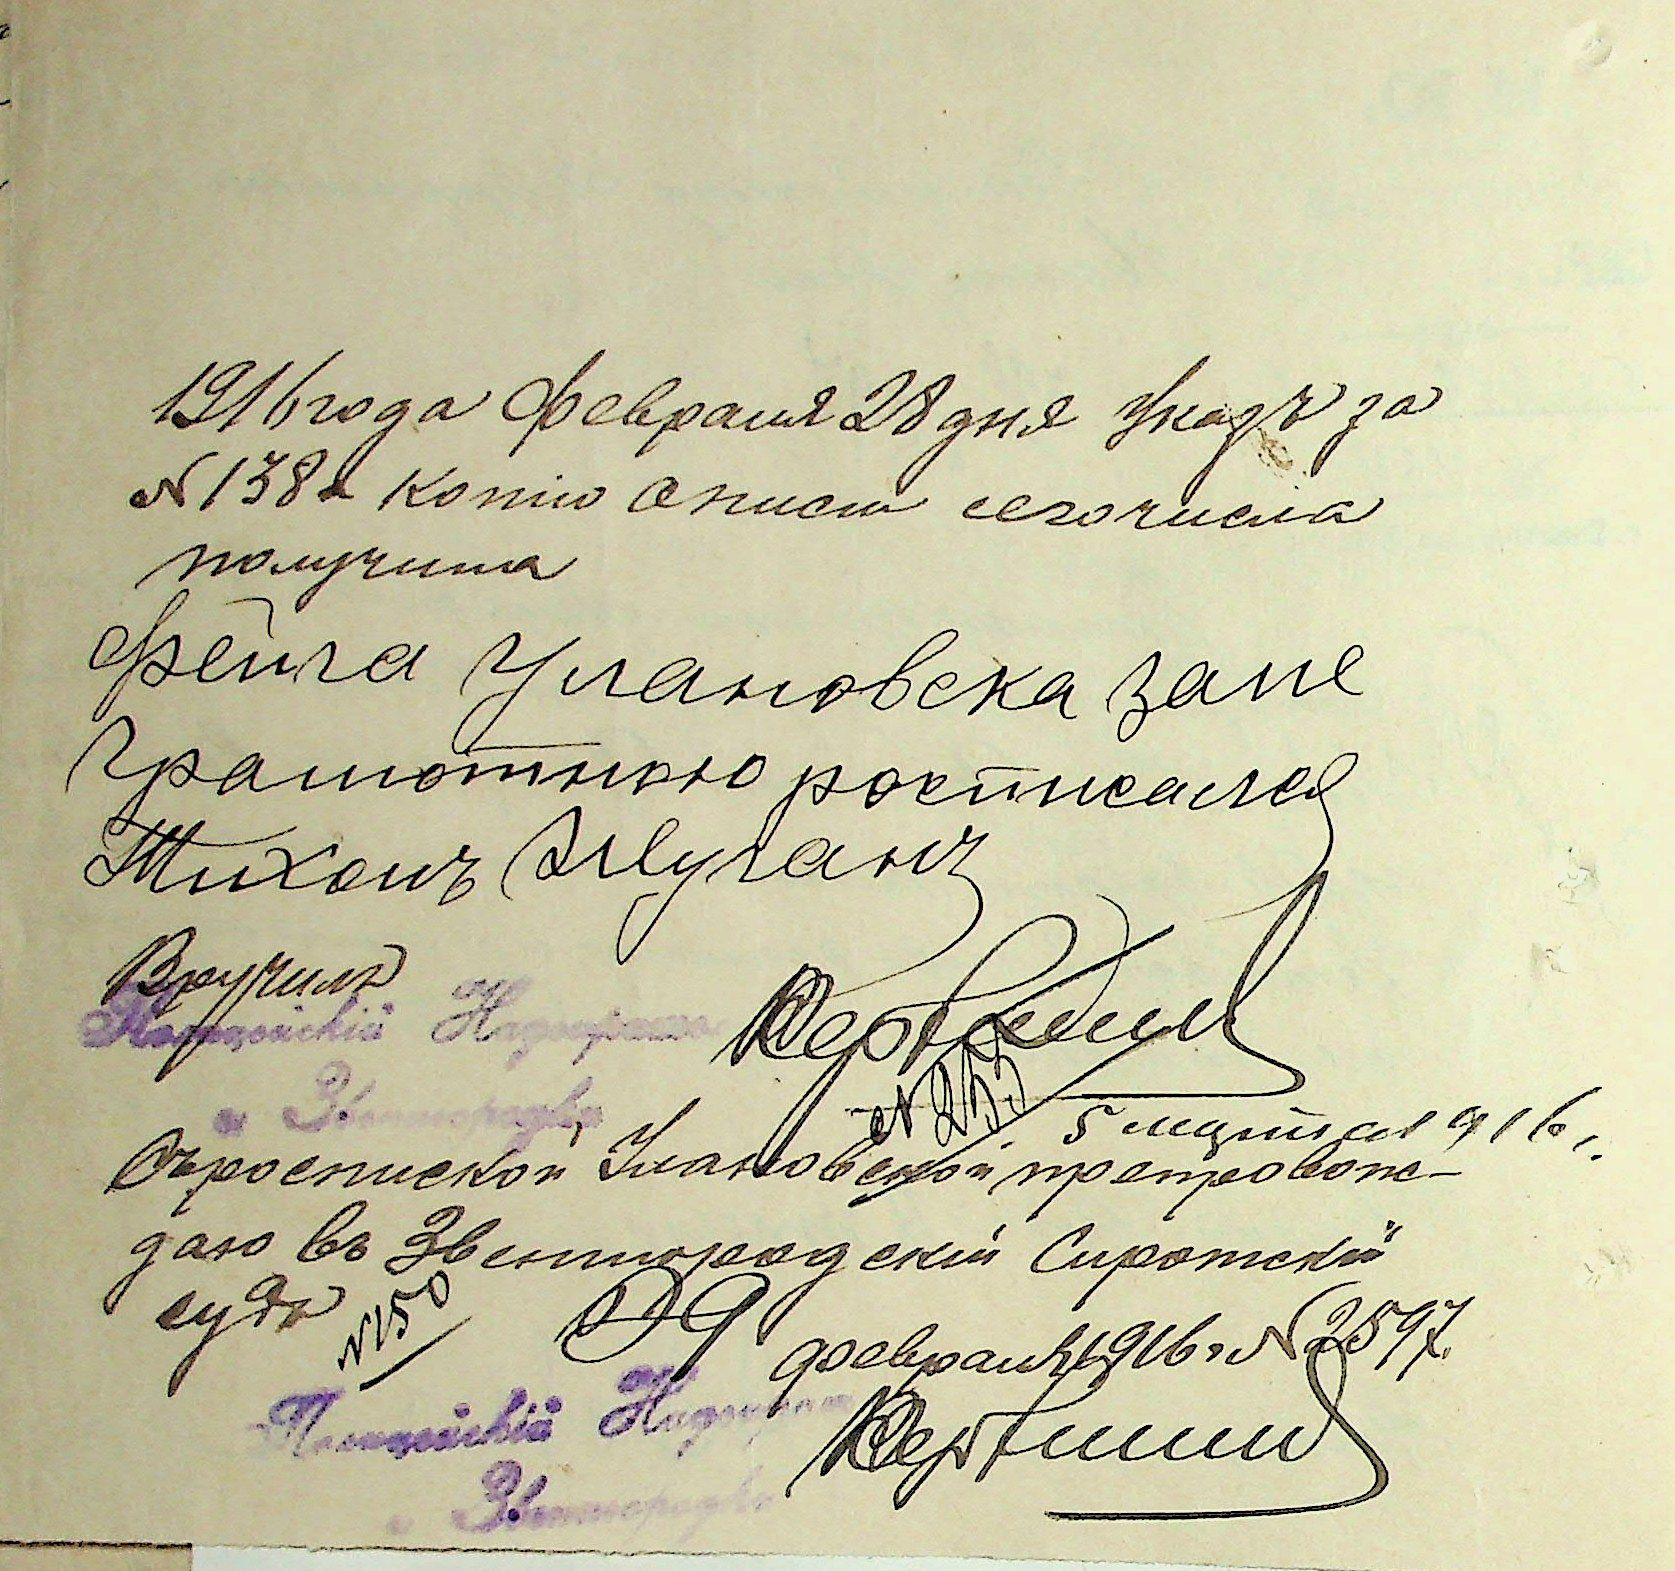 1916 года Февраля 28 дня Указъ за
№ 138 и копію описи сего числа
получила
Фейга Улановска зане
грамотною росписался
Тихонъ
Вручилъ
Полицейскій Надзиратель
г. Звенигородки
№ 233
5 марта 1916 г.
Съ роспиской Улановской препровож-
даю въ Звенигородскій Сиротскій
судъ
№ 150
29 февраля 1916 г. № 2597.
Полицейскій Надзиратель
г. Звенигородки